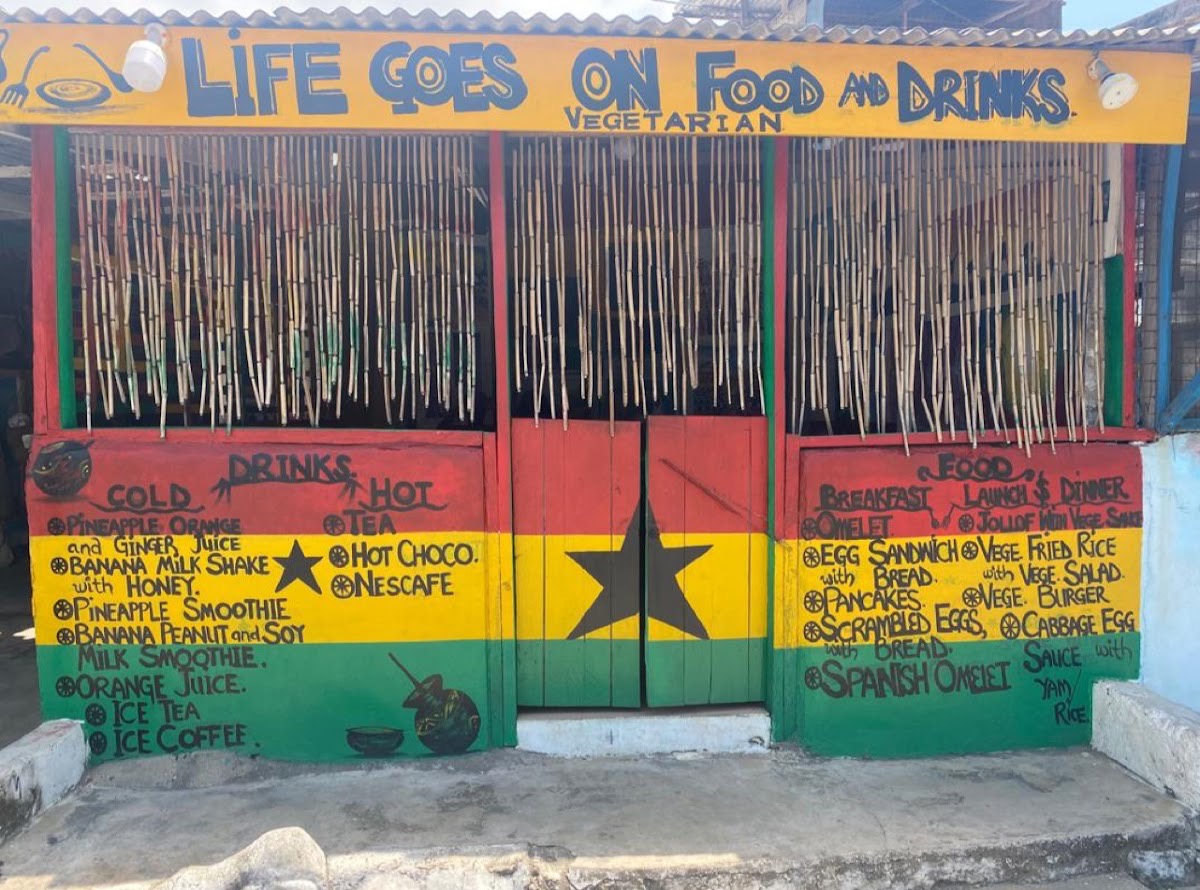 LIFE GOES ON FOOD AND DRINKS.
VEGETARIAN
DRINKS.
COLD
PINEAPPLE ORANGE
and GINGER JUICE
BANANA MILK SHAKE
with HONEY.
PINEAPPLE SMOOTHIE
BANANA PEANUT and SOY
MILK SMOOTHIE.
ORANGE JUICE.
ICE TEA
ICE COFFEE.
HOT
TEA
HOT CHOCO.
NESCAFE
FOOD
BREAKFAST
OMELET
EGG SANDWICH
with BREAD.
PANCAKES.
SCRAMBLED EGGS,
with BREAD.
SPANISH OMELET
LAUNCH $ DINNER
JOLLOF WITH VEGE. SAUCE
VEGE. FRIED RICE
with VEGE. SALAD.
VEGE. BURGER
CABBAGE EGG
SAUCE with
YAM
RICE.